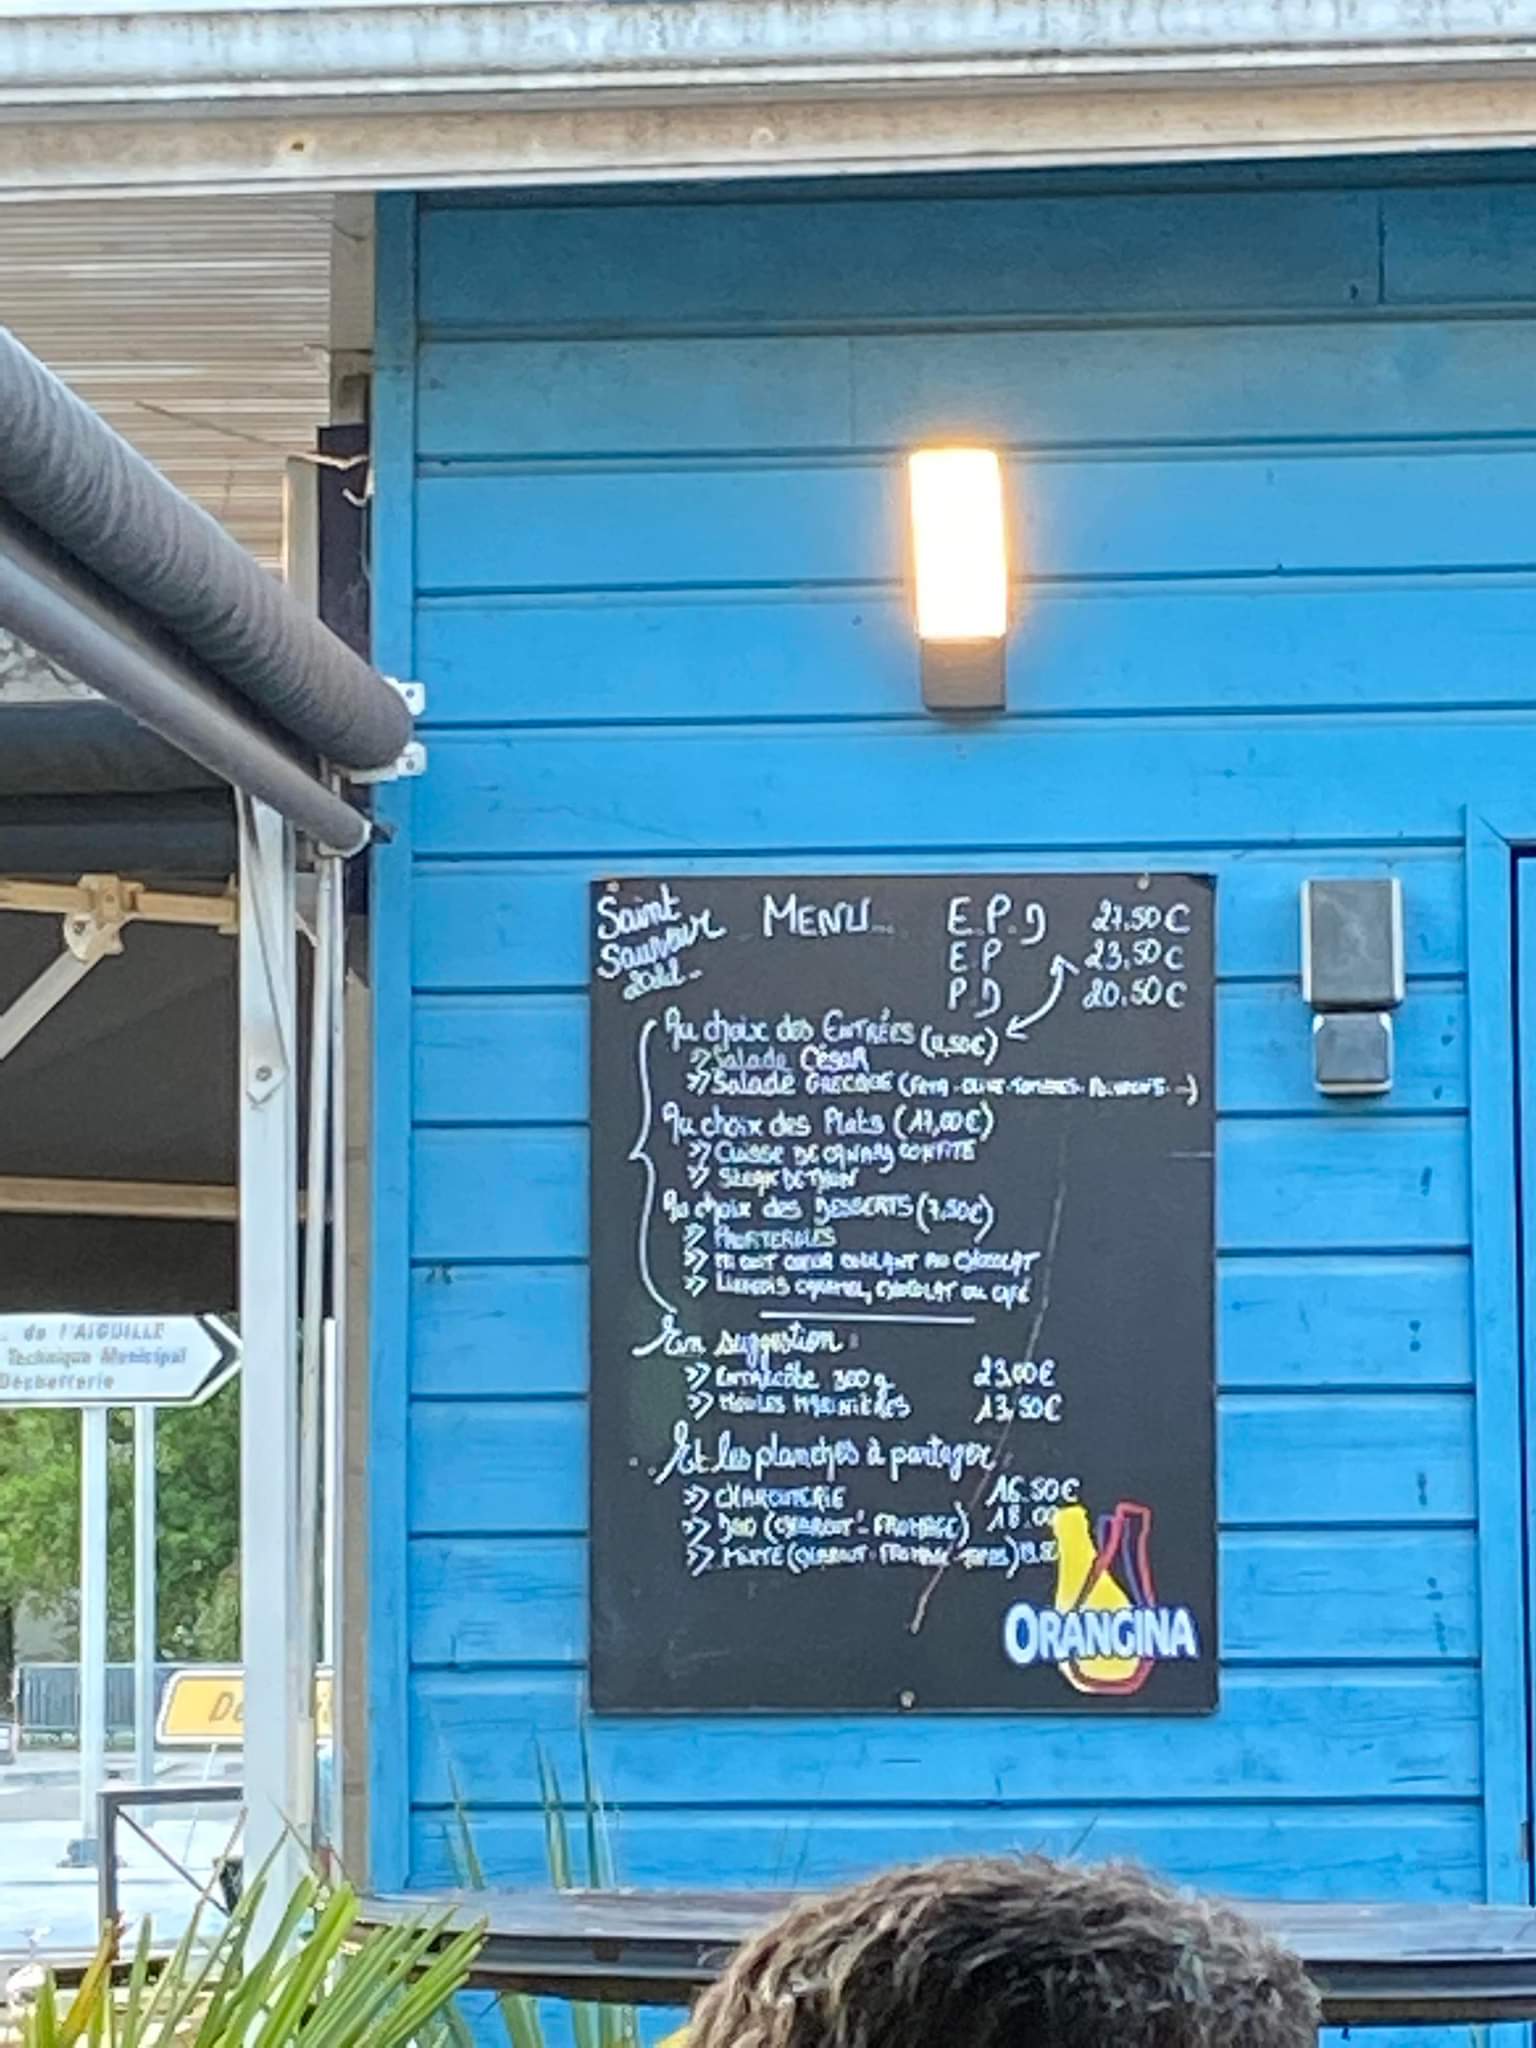 Saint
Sauveur
MENU...
E.P.D 27,50€
E P 23,50€
P D 20.50€
Au choix des ENTRÉES
>> Salade CÉSAR
>> Salade GRECQUE (FETA - OLIVE - TOMATES - POIVRONS ...)
Au choix des Plats (17,00€)
>> CUISSE DE CANARD CONFITE
>> STEAK DE THON
Au choix des DESSERTS (7,50€)
>> PROFITEROLES
>> MI CUIT COEUR COULANT AU CHOCOLAT
>> LIEGEOIS CARAMEL, CHOCOLAT OU CAFÉ
En suggestion :
>> ENTRECÔTE 300 g 23,00€
>> MOULES MARINIÈRES 13,50€
...Et les planches à partager
>> CHARCUTERIE 16.50€
>> DUO (CHARCUT' - FROMAGE) 18.00
>> MIXTE (CHARCUT - FROMAGE - TAPAS)
ORANGINA
de l'AIGUILLE
Technique Municipal
Déchetterie